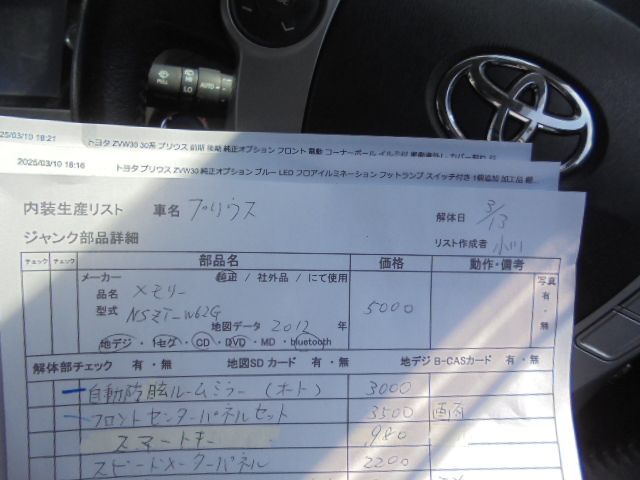 LO AUTO
25/03/10 18:21 トヨタ ZVW30 30系 プリウス 前期 後期 純正オプション フロント 電動 コーナーポール
2025/03/10 18:16 トヨタ プリウス ZVW30 純正オプション ブルー LED フロアイルミネーション フットランプ スイッチ付き 1個追加 加工品
内装生産リスト 車名 プリウス 解体日 3/13
ジャンク部品詳細 リスト作成者 小川
チェック チェック 部品名 価格 動作・備考
メーカー 純正 / 社外品 / にて使用 写真
品名 メモリー 5000 有
型式 NSZT-W62G ・
地図データ 2012 年 無
地デジ ・ 1セグ ・ CD ・ DVD ・ MD ・ bluetooth
解体部チェック 有 ・ 無 地図SD カード 有 ・ 無 地デジ B-CASカード 有 ・ 無
自動防眩ルームミラー (オート) 3000
フロントセンターパネルセット 3500
スマートキー 980
スピードメーターパネル 2200